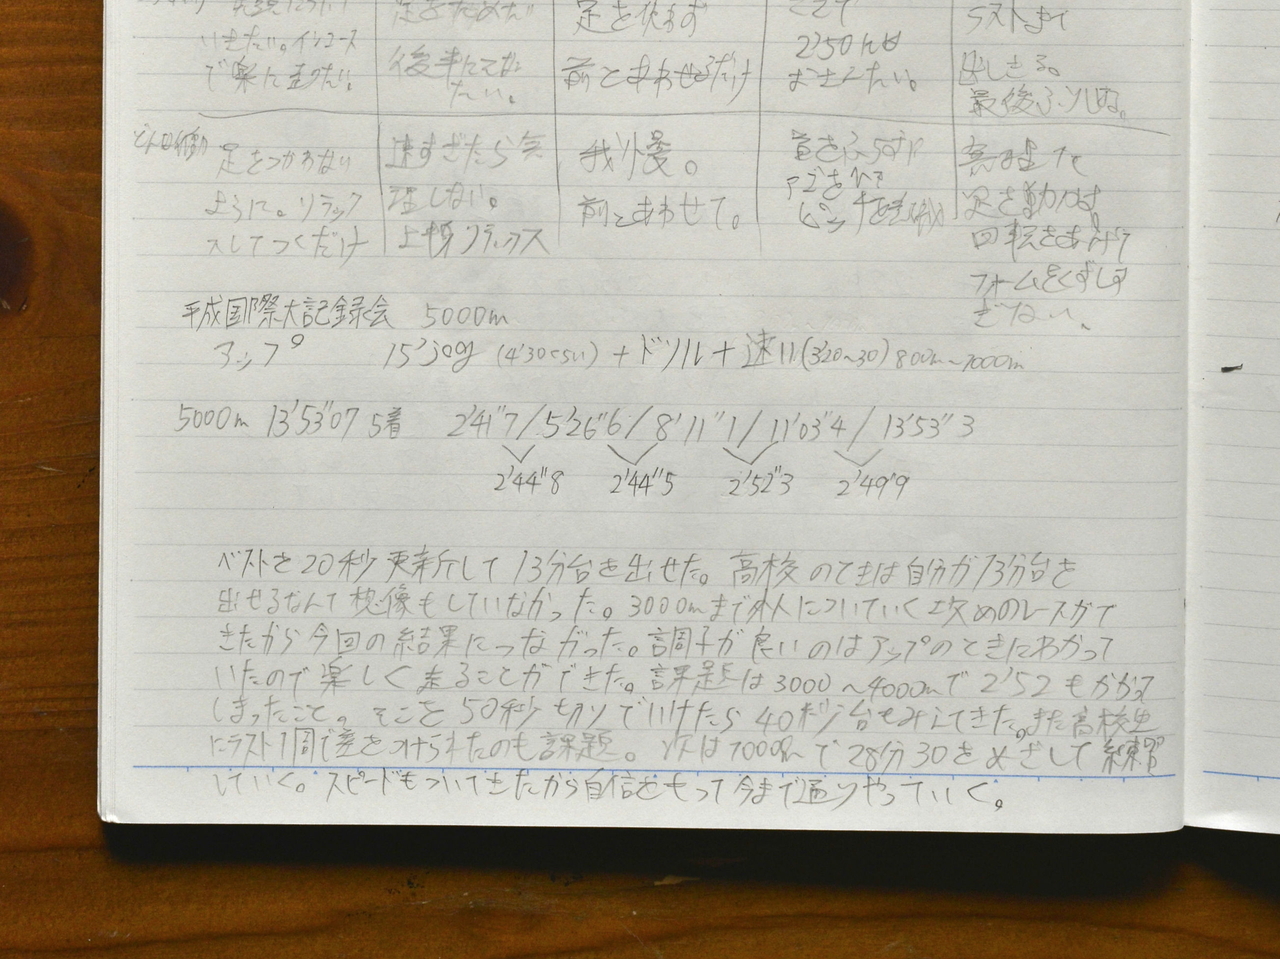 いきたい。インコース 後半にそなえ 足を休ます 2'50"は ラストまで
で楽に走りたい。 たい。 前とあわせるだけ おさえたい。 出しきる。
最後ふりしぼる。
足をつかわない 速すぎたら無 我慢。 首をふらずに 真ん中で
ように。リラック 理しない。 前とあわせて。 アゴをひき 足を動かす。
スしてつくだけ 上半身リラックス ピッチを意識 回転をあげて
フォームをくずしす
ぎない。
平成国際大記録会 5000m
アップ 15'jog (4'30くらい) + ドリル + 速い(3'20~30) 800m~1000m
5000m 13'53"07 5着 2'41"7 / 5'26"6 / 8'11"1 / 11'03"4 / 13'53"3
2'44"8 2'44"5 2'52"3 2'49"9
ベストを20秒更新して13分台を出せた。高校のときは自分が13分台を
出せるなんて想像もしていなかった。3000mまで外人についていく攻めのレースがで
きたから今回の結果につながった。調子が良いのはアップのときにわかって
いたので楽しく走ることができた。課題は3000~4000mで2'52もかかって
しまったこと。そこを50秒切りでいけたら40秒台もみえてきた。また高校生
にラスト1周で差をつけられたのも課題。次は10000mで28分30をめざして練習
していく。スピードもついてきたから自信をもって今まで通りやっていく。